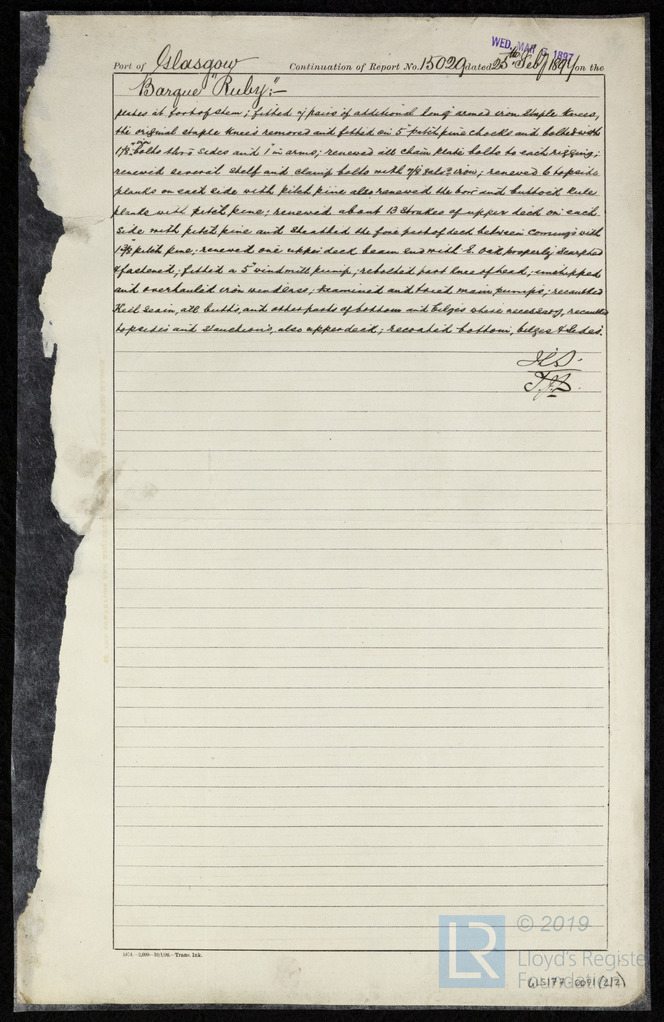 WED. MAR 3 1897
Port of Glasgow Continuation of Report No. 15029 dated 25th Feby 1897 on the
Barque "Ruby":-
plates at foot of stem; fitted 4 pairs of additional long armed iron staple knees,
the original staple knees removed and fitted on 5" pitch pine chocks and bolted with
1 1/8" bolts thro sides and 1" in arms; renewed all chain plate bolts to each rigging;
renewed several shelf and clamp bolts with 7/8 galv. iron; renewed 6 topside
planks on each side with pitch pine also renewed the bow and buttock rule
planks with pitch pine; renewed about 13 strakes of upper deck on each
side with pitch pine and sheathed the fore part of deck between comings with
pitch pine; renewed one upper deck beam end with E. Oak properly scarphed
& fastened; fitted a 5" windmill pump; rebolted post knee of head, unshipped
and overhauled iron windlass; examined and tried main pumps; recaulked
Keel seam, all butts, and other parts of bottom and bilges where necessary, recaulked
topsides and stanchions, also upper deck; recoated bottom, bilges & sides.
1874.—2,000—Trans. Ink.
© 2019
LR
Lloyd's Register
Foundation
GLS177-0091(2/2)